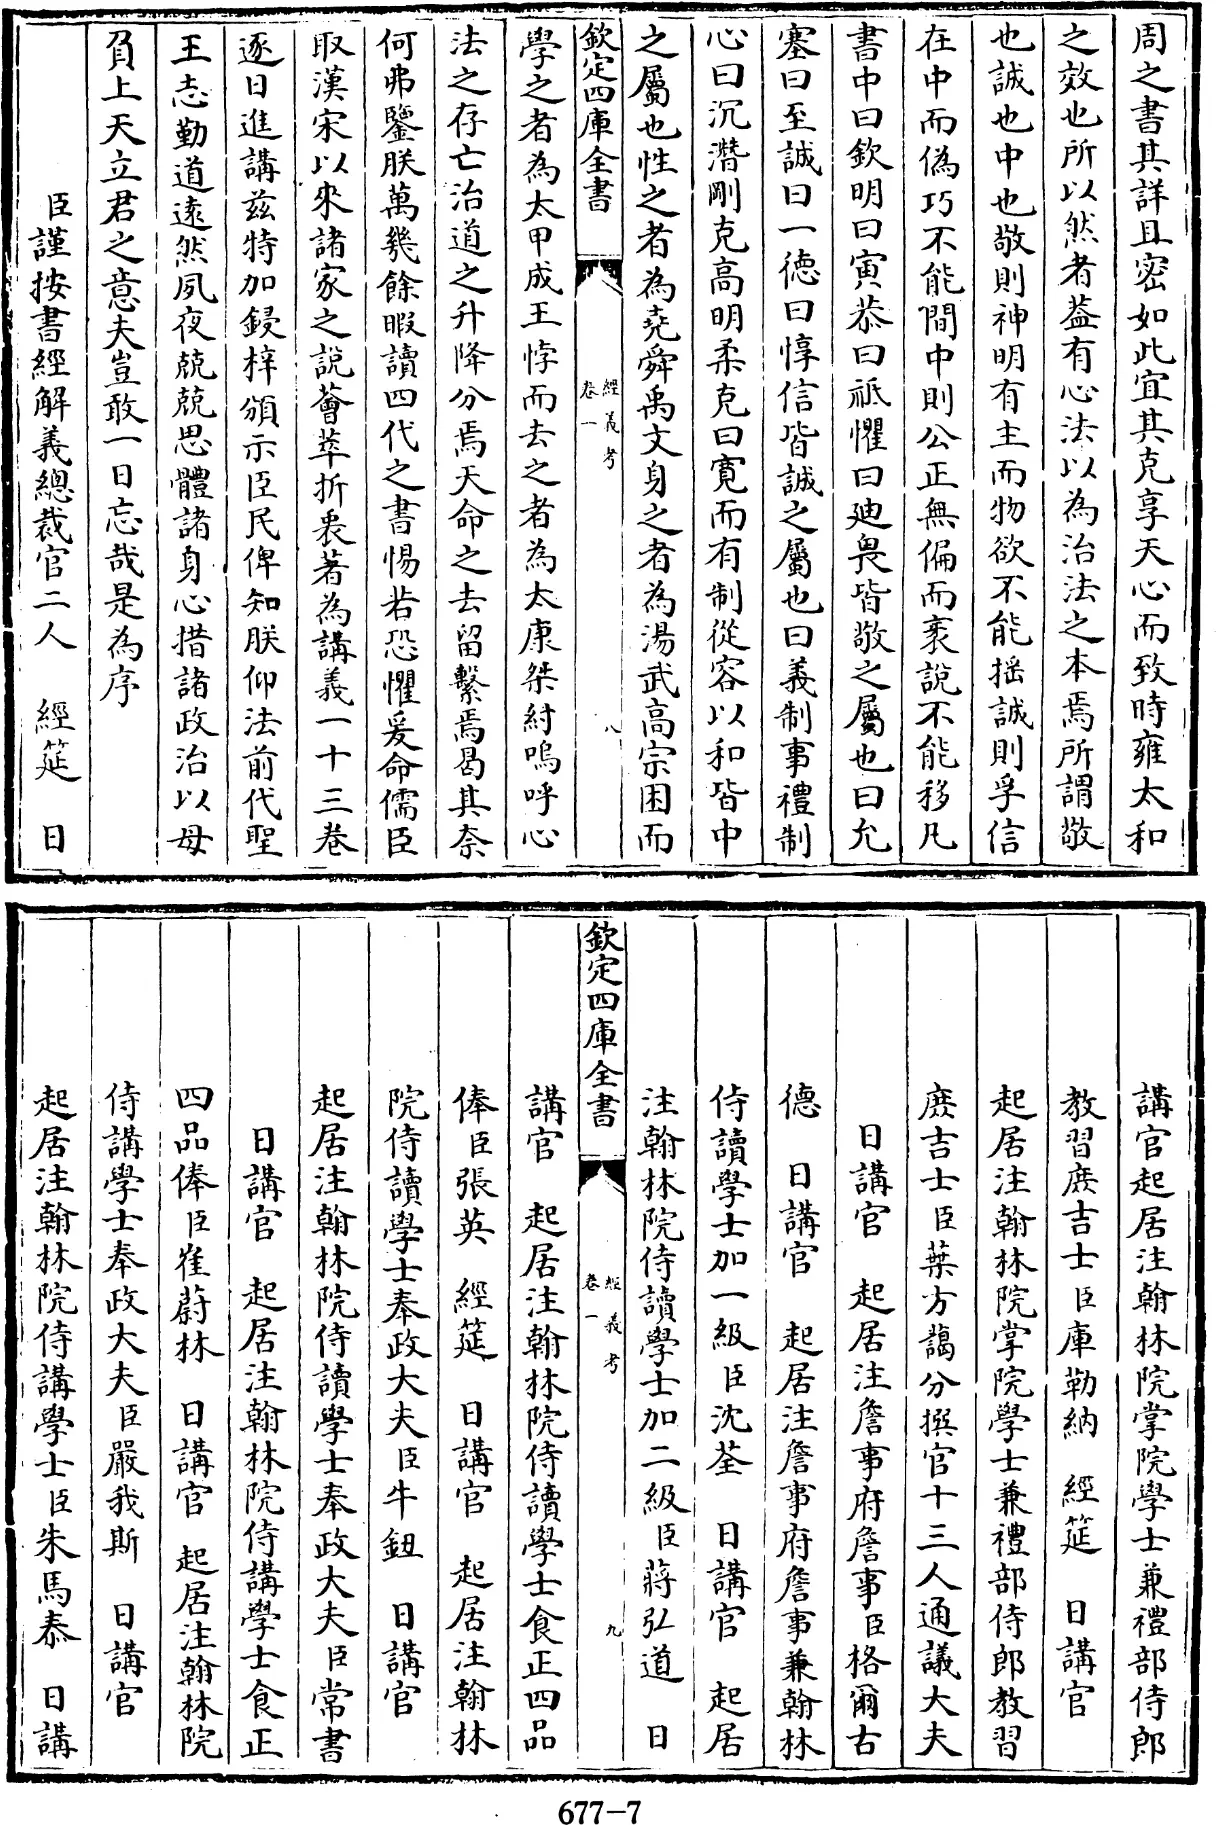 周之書其詳且密如此宜其克享天心而致時雍太和
之效也所以然者葢有心法以為治法之本焉所謂敬
也誠也中也敬則神明有主而物欲不能揺誠則孚信
在中而偽巧不能間中則公正無偏而衺說不能移凡
書中曰欽明曰寅恭曰祇懼曰廸畏皆敬之屬也曰允
塞曰至誠曰一德曰惇信皆誠之屬也曰義制事禮制
心曰沉潛剛克高明柔克曰寛而有制從容以和皆中
之屬也性之者為堯舜禹文身之者為湯武高宗困而
欽定四庫全書
經義考
卷一
八
學之者為太甲成王悖而去之者為太康桀紂嗚呼心
法之存亡治道之升降分焉天命之去留繫焉曷其奈
何弗鑒朕萬幾餘暇讀四代之書惕若恐懼爰命儒臣
取漢宋以來諸家之說薈萃折衷著為講義一十三卷
逐日進講兹特加鋟梓頒示臣民俾知朕仰法前代聖
王志勤道逺然夙夜兢兢思體諸身心措諸政治以毋
負上天立君之意夫豈敢一日忘哉是為序
臣謹按書經解義總裁官二人　經筵　日
講官起居注翰林院掌院學士兼禮部侍郎
教習庶吉士臣庫勒納　經筵　日講官
起居注翰林院掌院學士兼禮部侍郎教習
庶吉士臣葉方藹分撰官十三人通議大夫
日講官　起居注詹事府詹事臣格爾古
德　日講官　起居注詹事府詹事兼翰林
侍讀學士加一級臣沈荃　日講官　起居
注翰林院侍讀學士加二級臣蔣弘道　日
欽定四庫全書
經義考
卷一
九
講官　起居注翰林院侍讀學士食正四品
俸臣張英　經筵　日講官　起居注翰林
院侍讀學士奉政大夫臣牛鈕　日講官
起居注翰林院侍讀學士奉政大夫臣常書
日講官　起居注翰林院侍講學士食正
四品俸臣崔蔚林　日講官　起居注翰林院
侍講學士奉政大夫臣嚴我斯　日講官
起居注翰林院侍講學士臣朱馬泰　日講
677-7